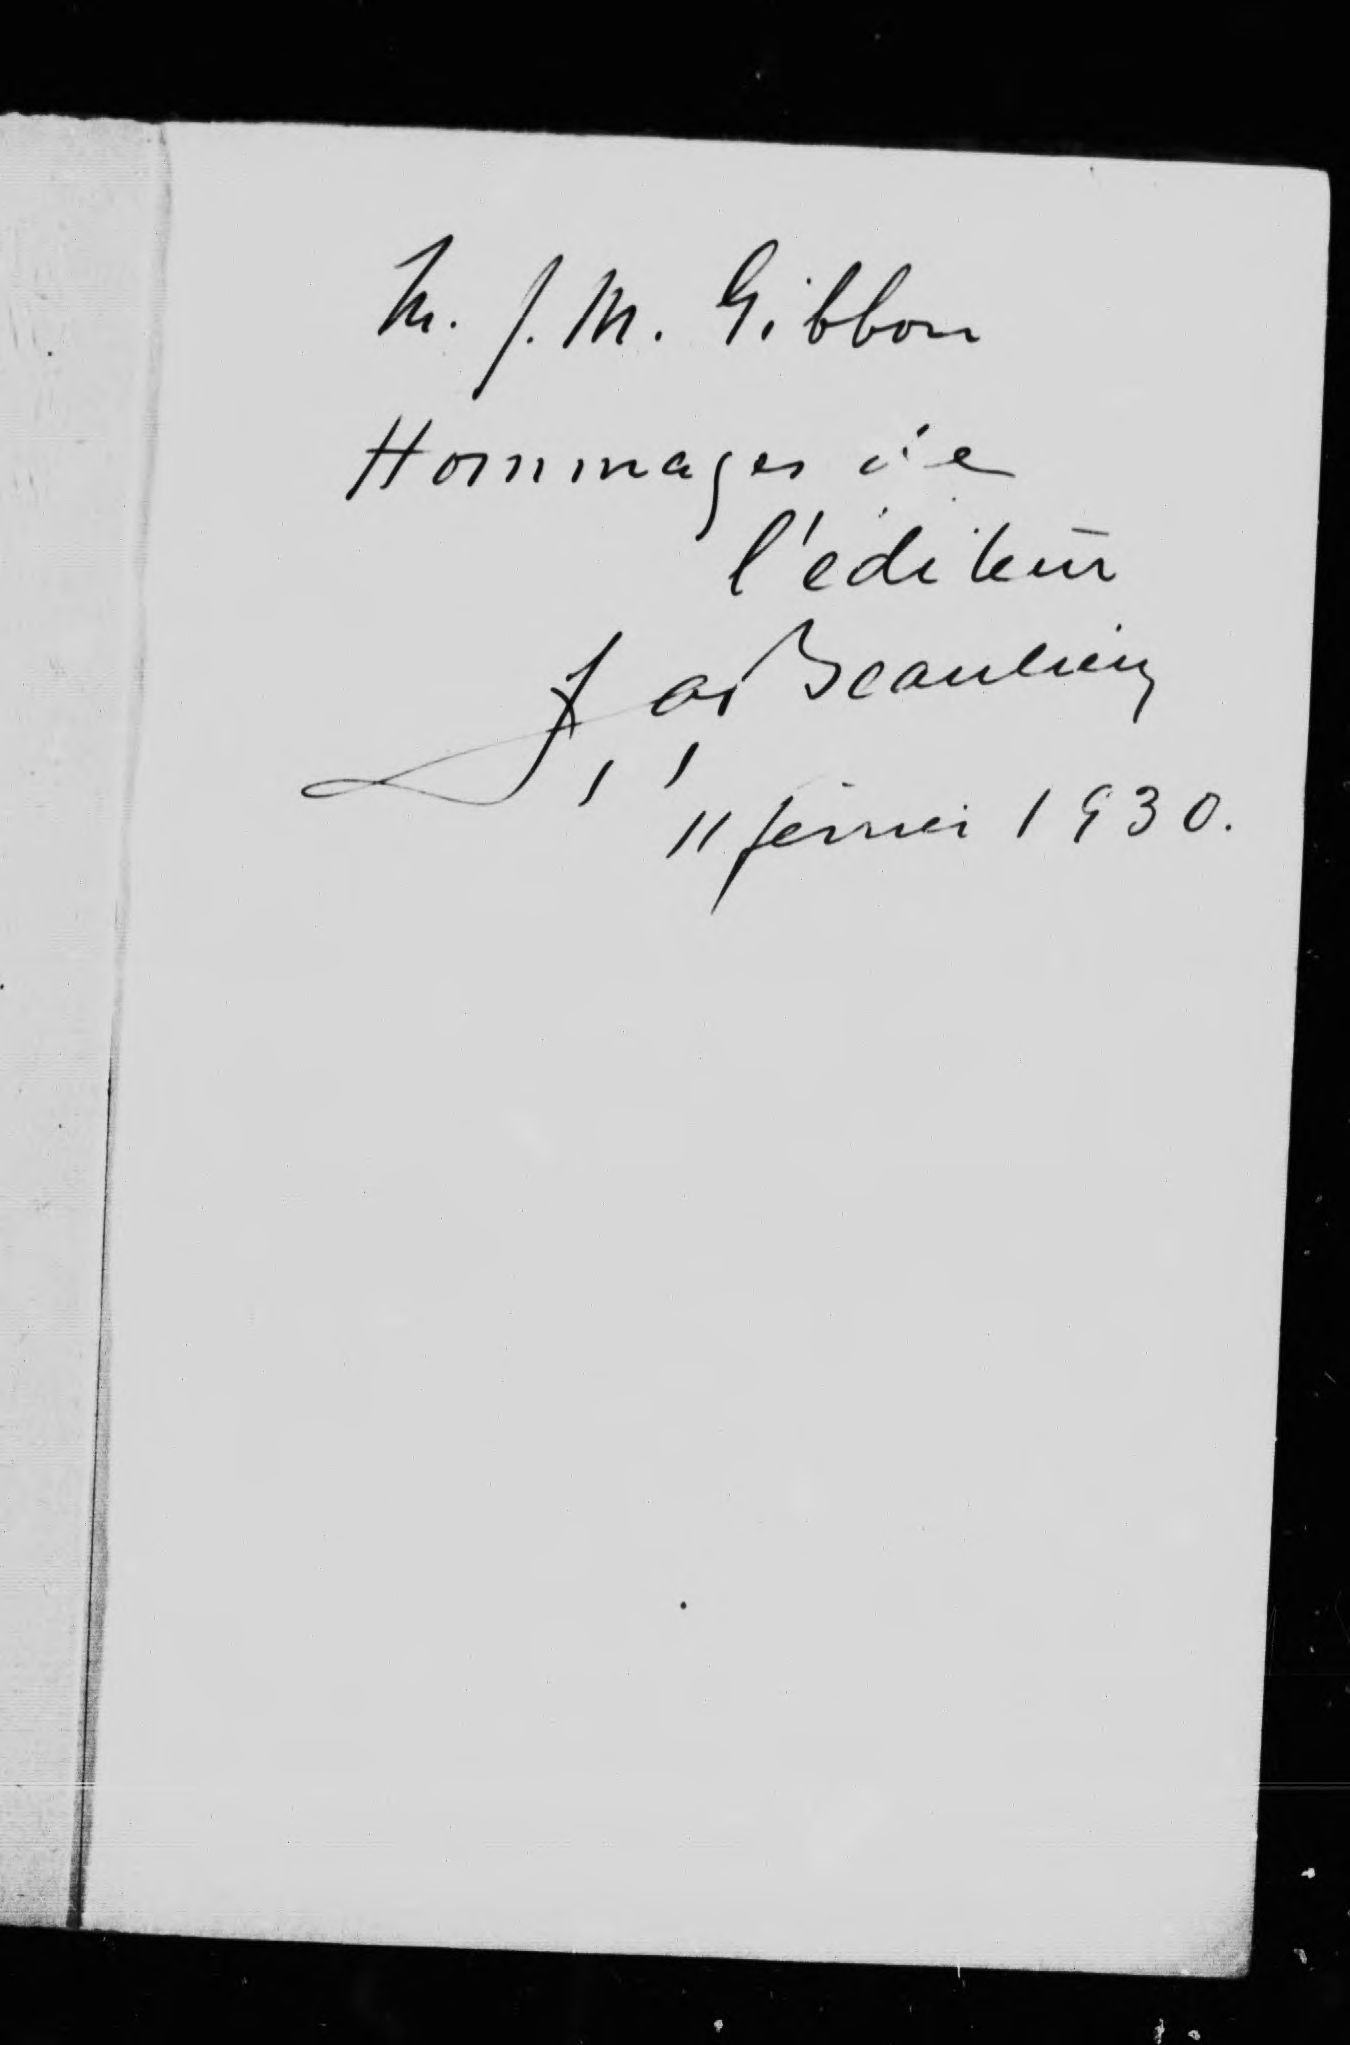 M. J. M. Gibbon
Hommages de
l'éditeur
Beaulieu
11 février 1930.